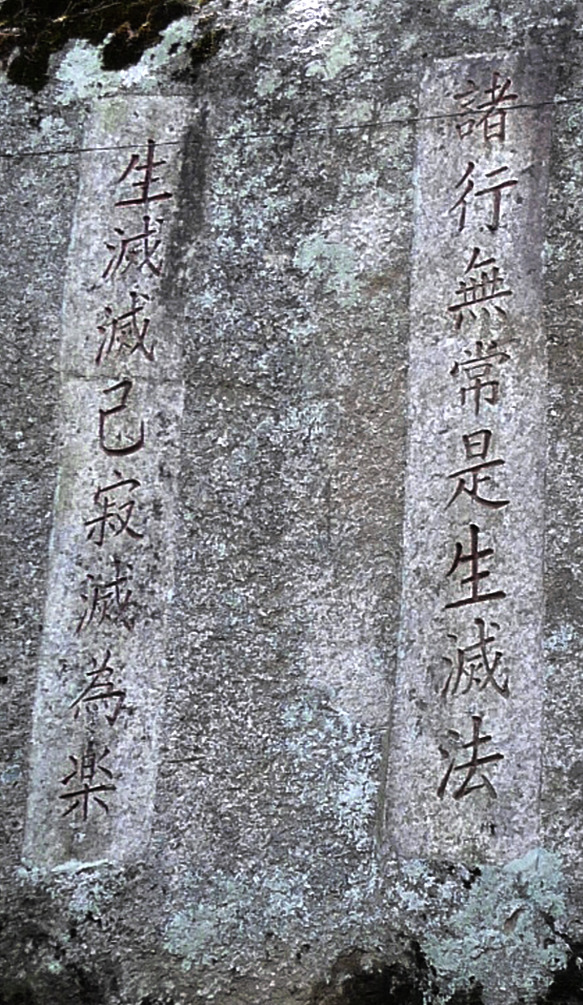 諸行無常是生滅法
生滅滅己寂滅為楽